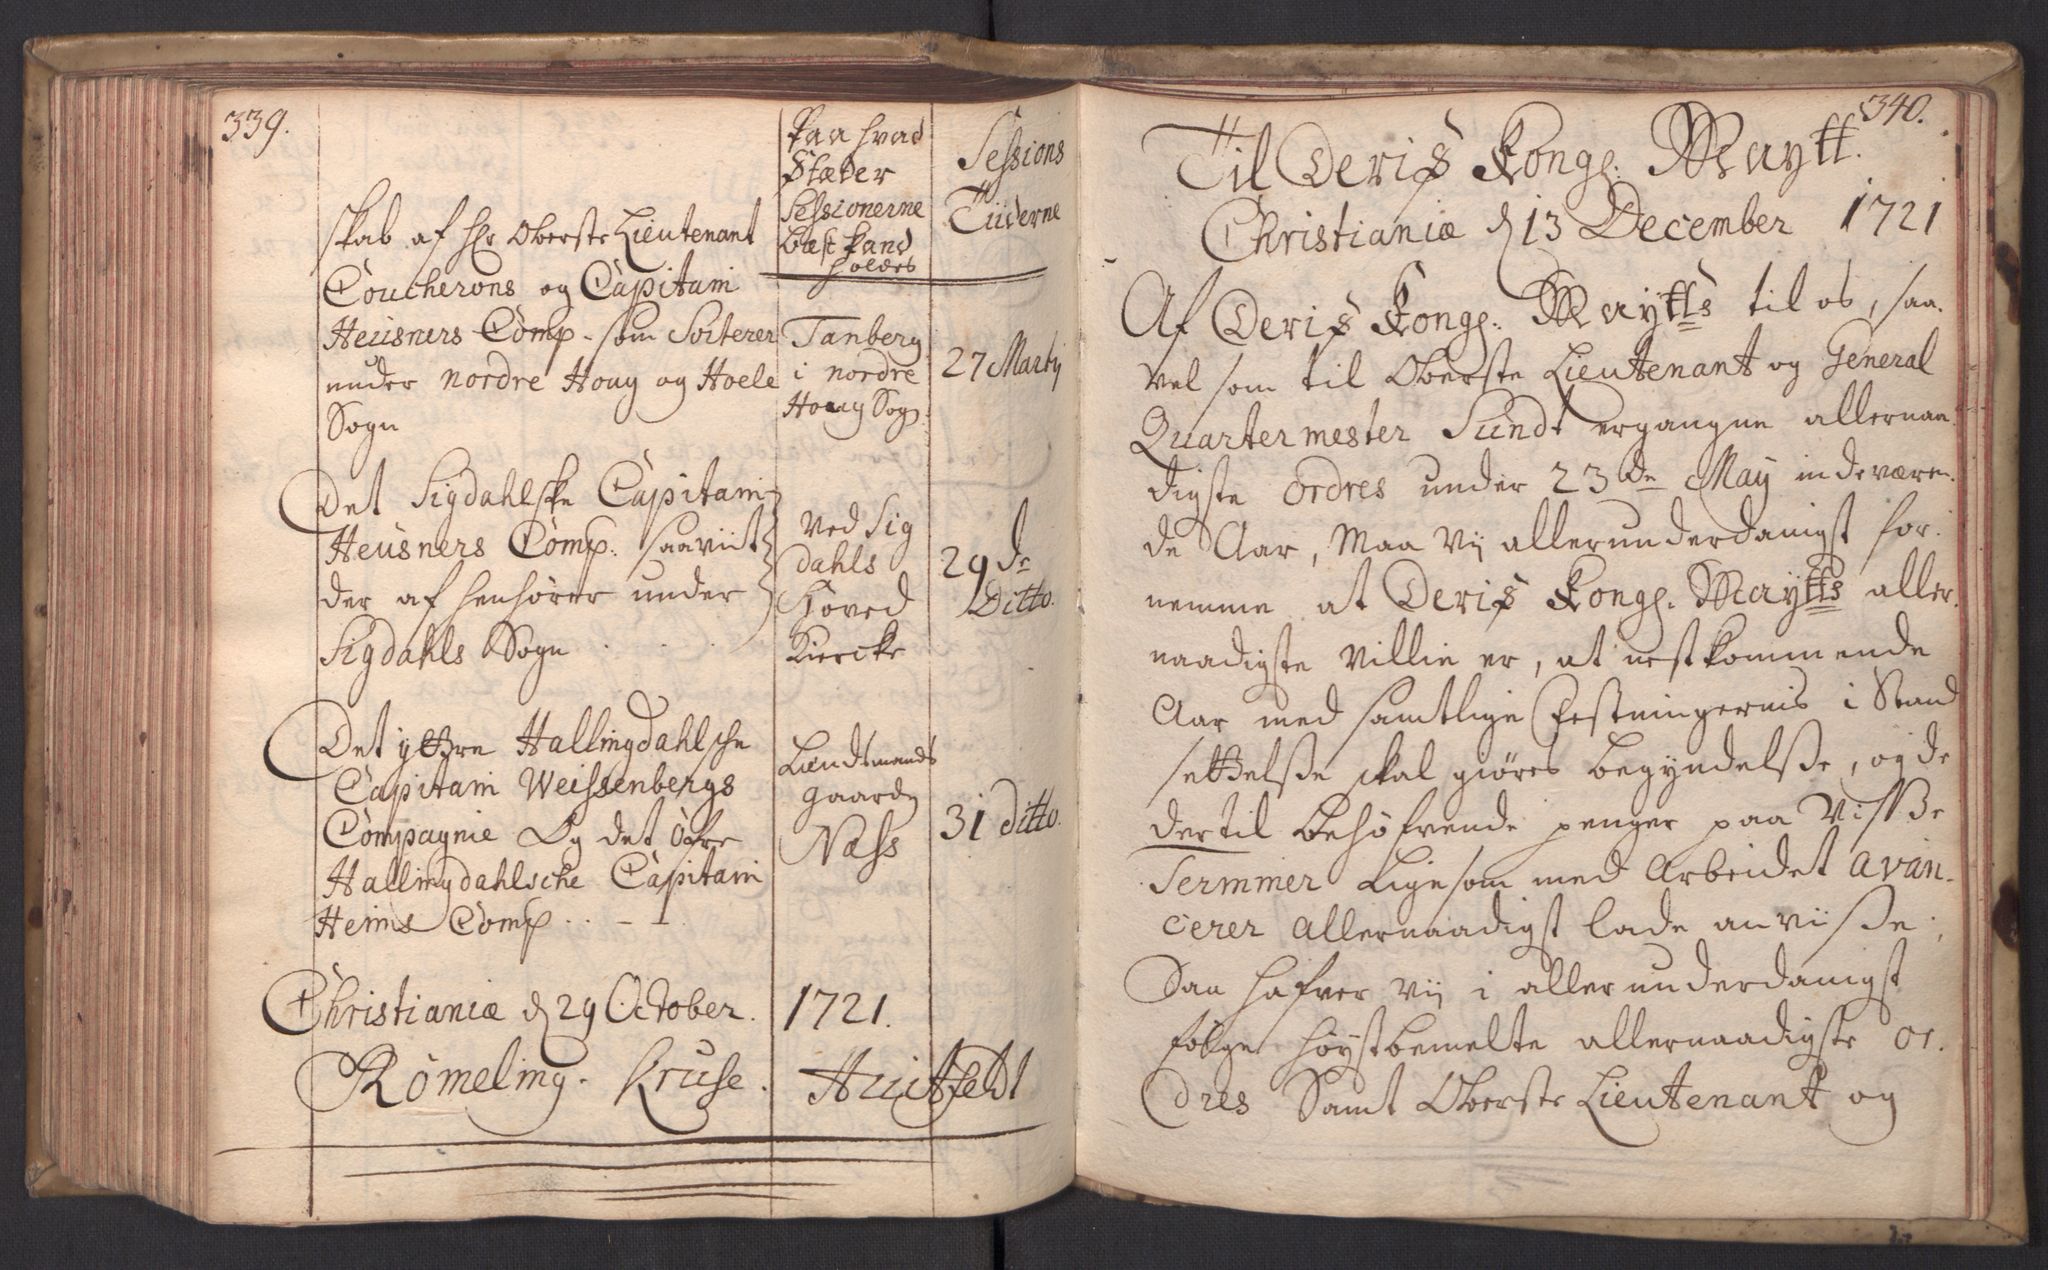 339.
Paa hvad
Stæder
Sessionerne
best kand
holdes
Sessions
Tiiderne
skab af Hr Oberste Lieutenant
Coucherons og Capitain
Heusners Comp. som Sorterer
under nordre Houg og Hoele
Sogn
Tanberg
i nordre
Houg Sogn.
27 Martij
Det Sigdahlske Capitain
Heusners Comp. saaviit
der af henhører under
Sigdahls Sogn . . .
Ved Sig
dahls
Hoved
Kiercke
29 de
Ditto.
Det yttre Hallingdahlsche
Capitain Weissenbergs
Compagnie Og det öfre
Hallingdahlsche Capitain
Heims Comp. . . - .
Lendsmands
gaarden
Næss
31 ditto.
Christianiæ d 29 October. 1721.
Römeling. Kruse. Huitfeldt
340.
Til Deris Kongl: Maytt.
Christianiæ d 13 December 1721
Af Deris Kongl: Maytts til os, saa
vel som til Oberste Lieutenant og General
Quartermester Sundt ergangne allernaa
digste Ordres under 23de May indeværen
de Aar, Maa Vij allerunderdanigst for
nemme at Deris Kongl. Maytts aller
naadigste Villie er, at nestkommende
Aar med samtlige Festningernis i Stand
settelsse skal giøres begyndelsse, og de
dertil behøfvende penger paa Visse
Terminer Ligesom med Arbeidet avan-
cerer Allernaadigst lade anviisse,
Saa hafver Vij i allerunderdanigst
følge høystbemelte allernaadigste Or
dres Samt Oberste Lieutenant og